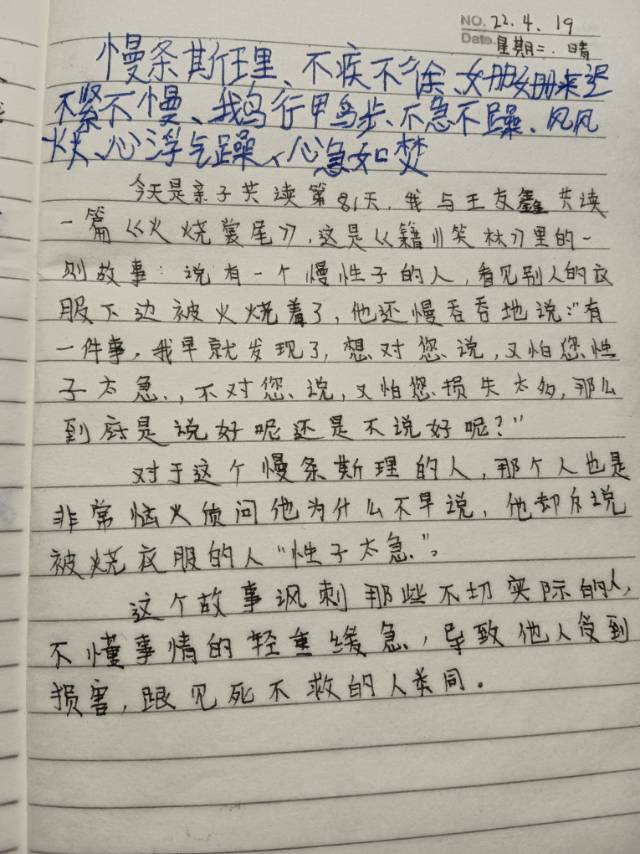 NO. 22.4.19
Date 星期二.晴
慢条斯理、不疾不徐、姗姗来迟
不紧不慢、鹅行鸭步、不急不躁、风风
火火、心浮气躁、心急如焚
今天是亲子共读第81天,我与王友鑫共读
一篇《火烧裳尾》,这是《籍川笑林》里的一
则故事:说有一个慢性子的人,看见别人的衣
服下边被火烧着了,他还慢吞吞地说:“有
一件事,我早就发现了,想对您说,又怕您性
子太急.,不对您说,又怕您损失太多,那么
到底是说好呢还是不说好呢?”
对于这个慢条斯理的人,那个人也是
非常恼火侦问他为什么不早说,他却斥说
被烧衣服的人“性子太急”。
这个故事讽刺那些不切实际的人,
不懂事情的轻重缓急,导致他人受到
损害,跟见死不救的人类同。